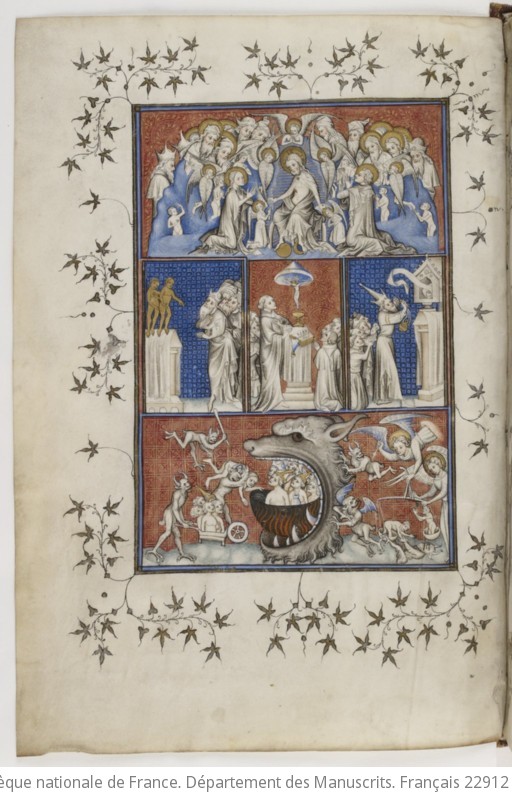 èque nationale de France. Département des Manuscrits. Français 22912